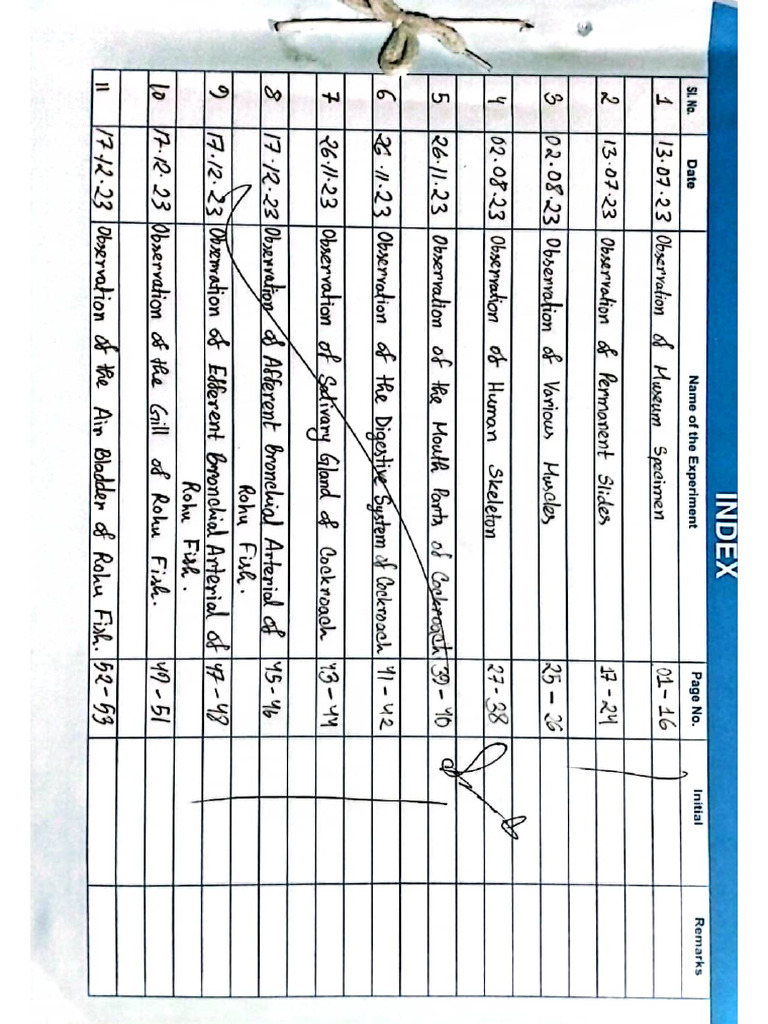 INDEX
Sl. No. Date Name of the Experiment Page No. Initial Remarks
1 13.07.23 Observation of Museum Specimen 01-16
2 13.07.23 Observation of Permanent Slides 17-24
3 02.08.23 Observation of Various Muscles 25-26
4 02.08.23 Observation of Human Skeleton 27-38
5 26.11.23 Observation of the Mouth Parts of Cockroach 39-40
6 26.11.23 Observation of the Digestive System of Cockroach 41-42
7 26.11.23 Observation of Salivary Gland of Cockroach 43-44
8 17.12.23 Observation of Afferent Bronchial Arterial of 45-46
Rohu Fish.
9 17.12.23 Observation of Efferent Bronchial Arterial of 47-48
Rohu Fish.
10 17.12.23 Observation of the Gill of Rohu Fish. 49-51
11 17.12.23 Observation of the Air Bladder of Rohu Fish. 52-53